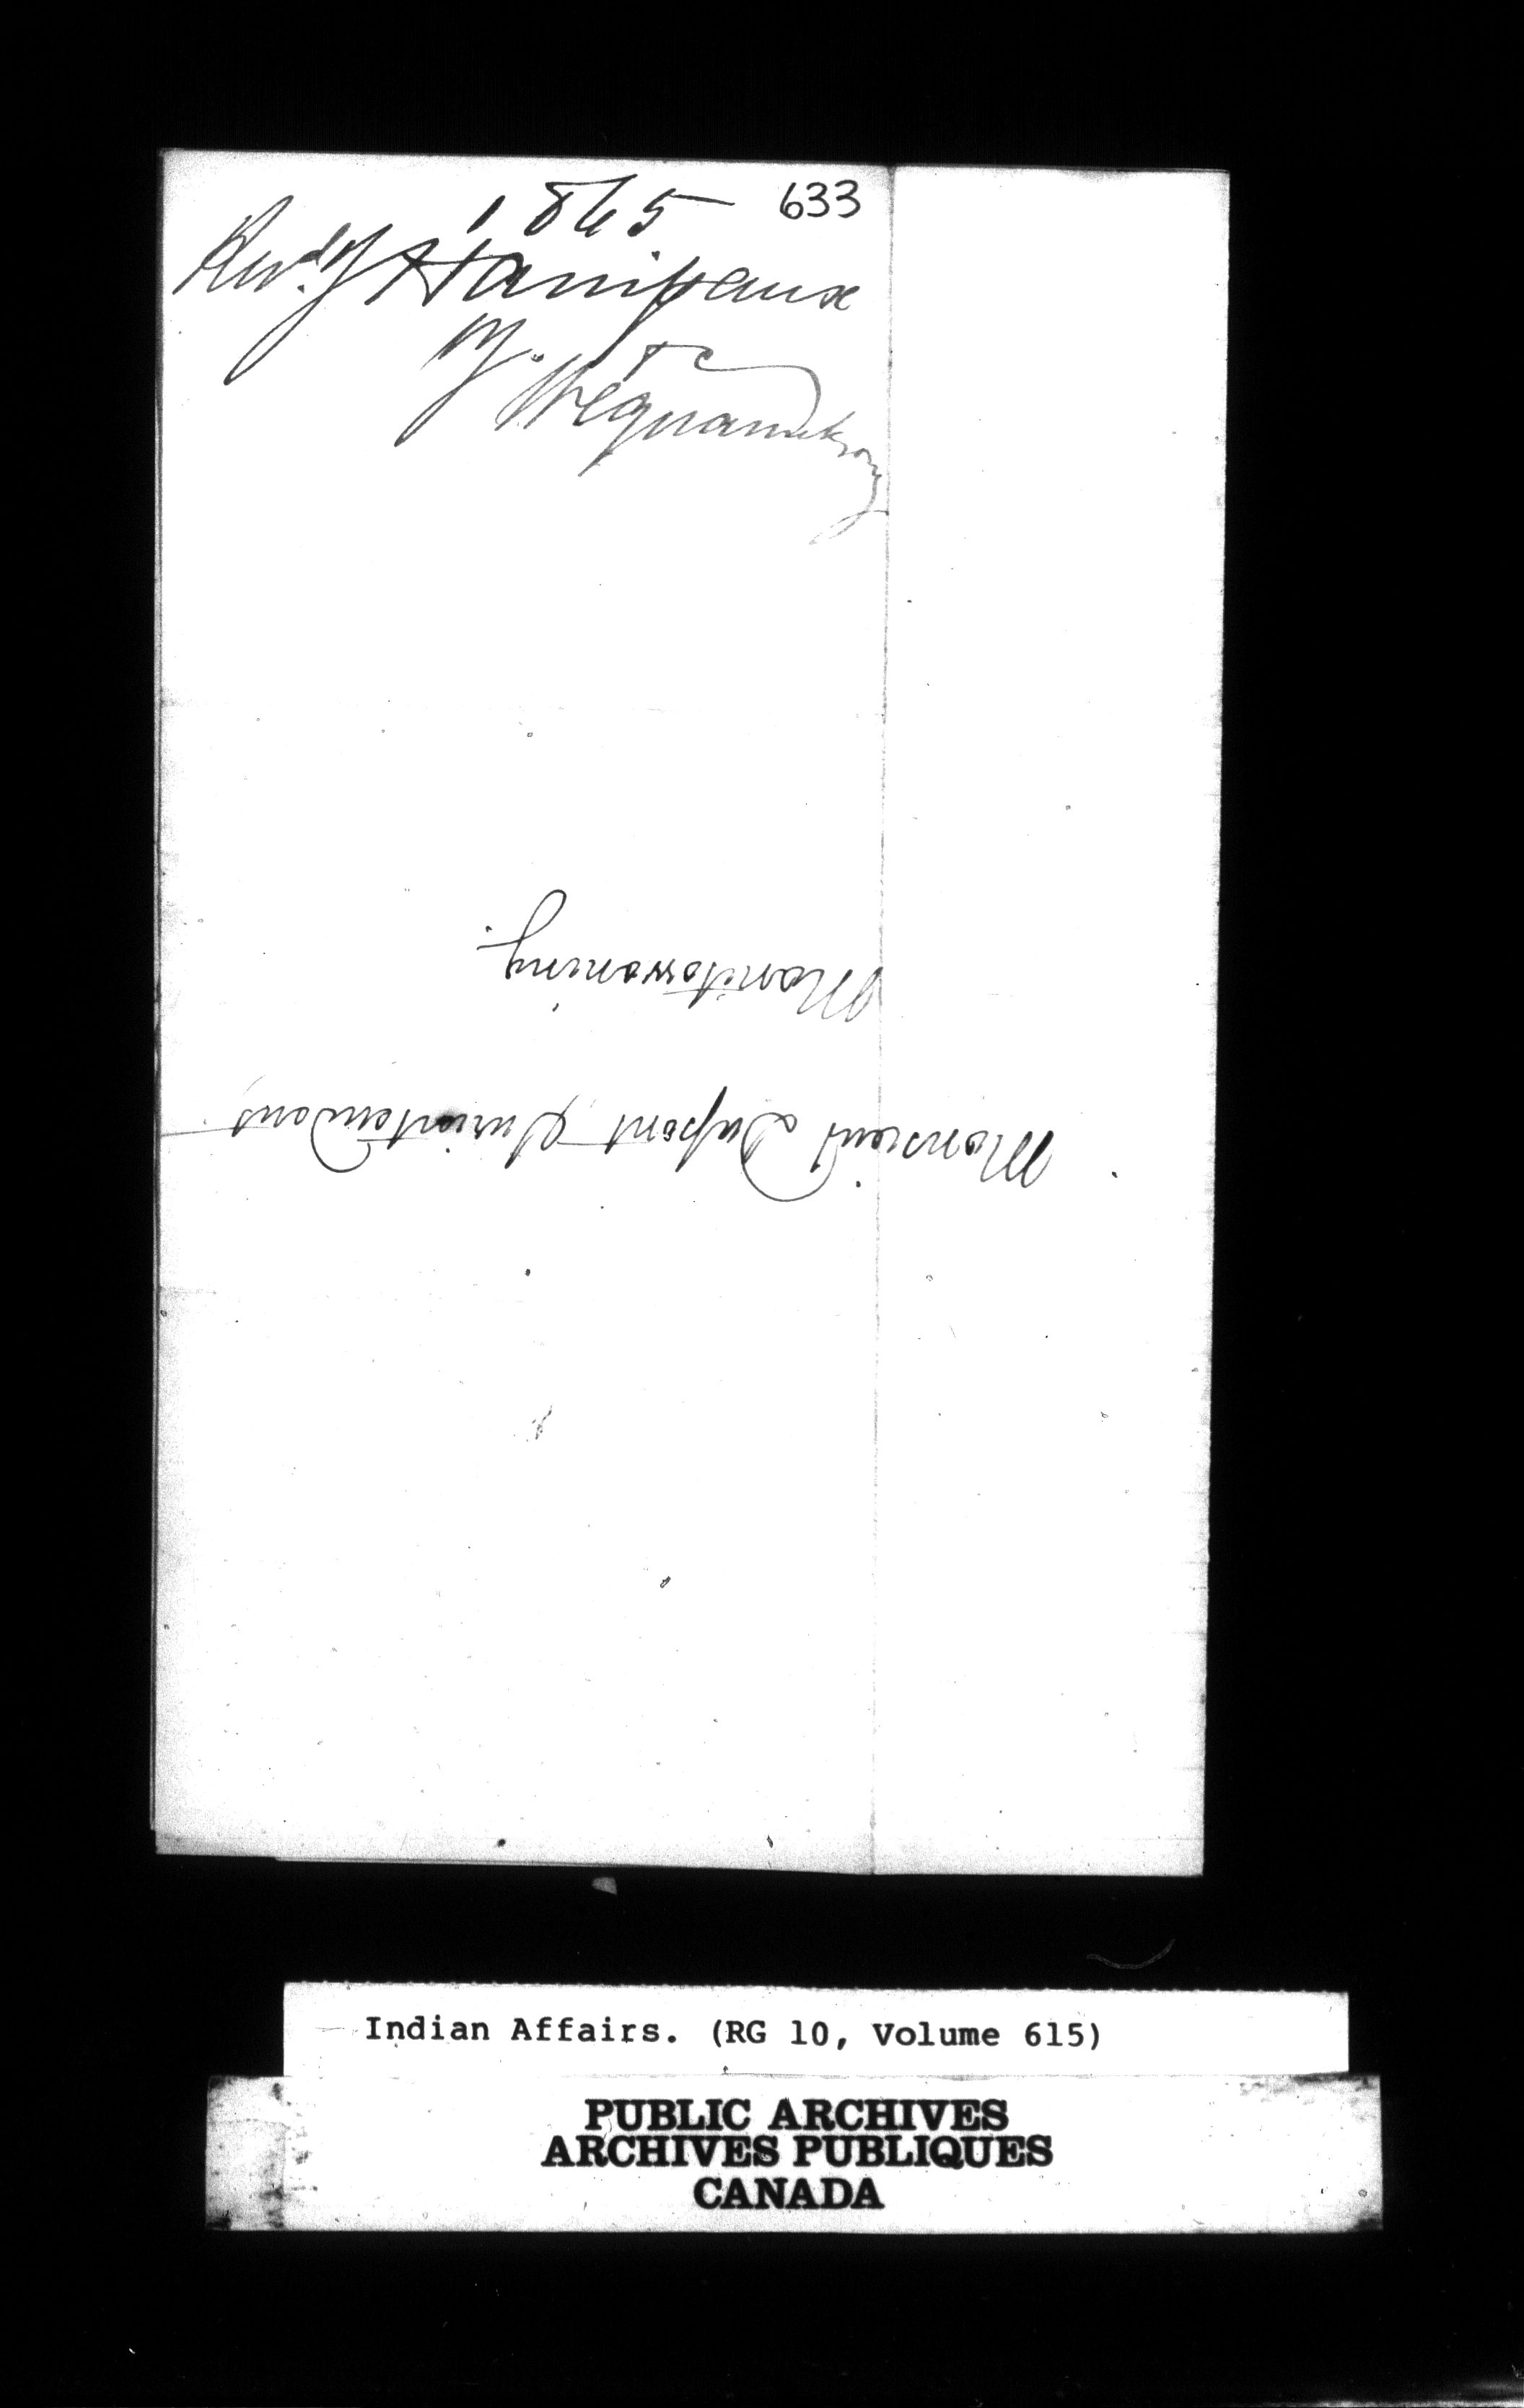 1865 633
Revd. J Hanipaux
J. &c
Wequamikong
Monsieur Dupont Surintendant
Manitowaning.
Indian Affairs. (RG 10, Volume 615)
PUBLIC ARCHIVES
ARCHIVES PUBLIQUES
CANADA